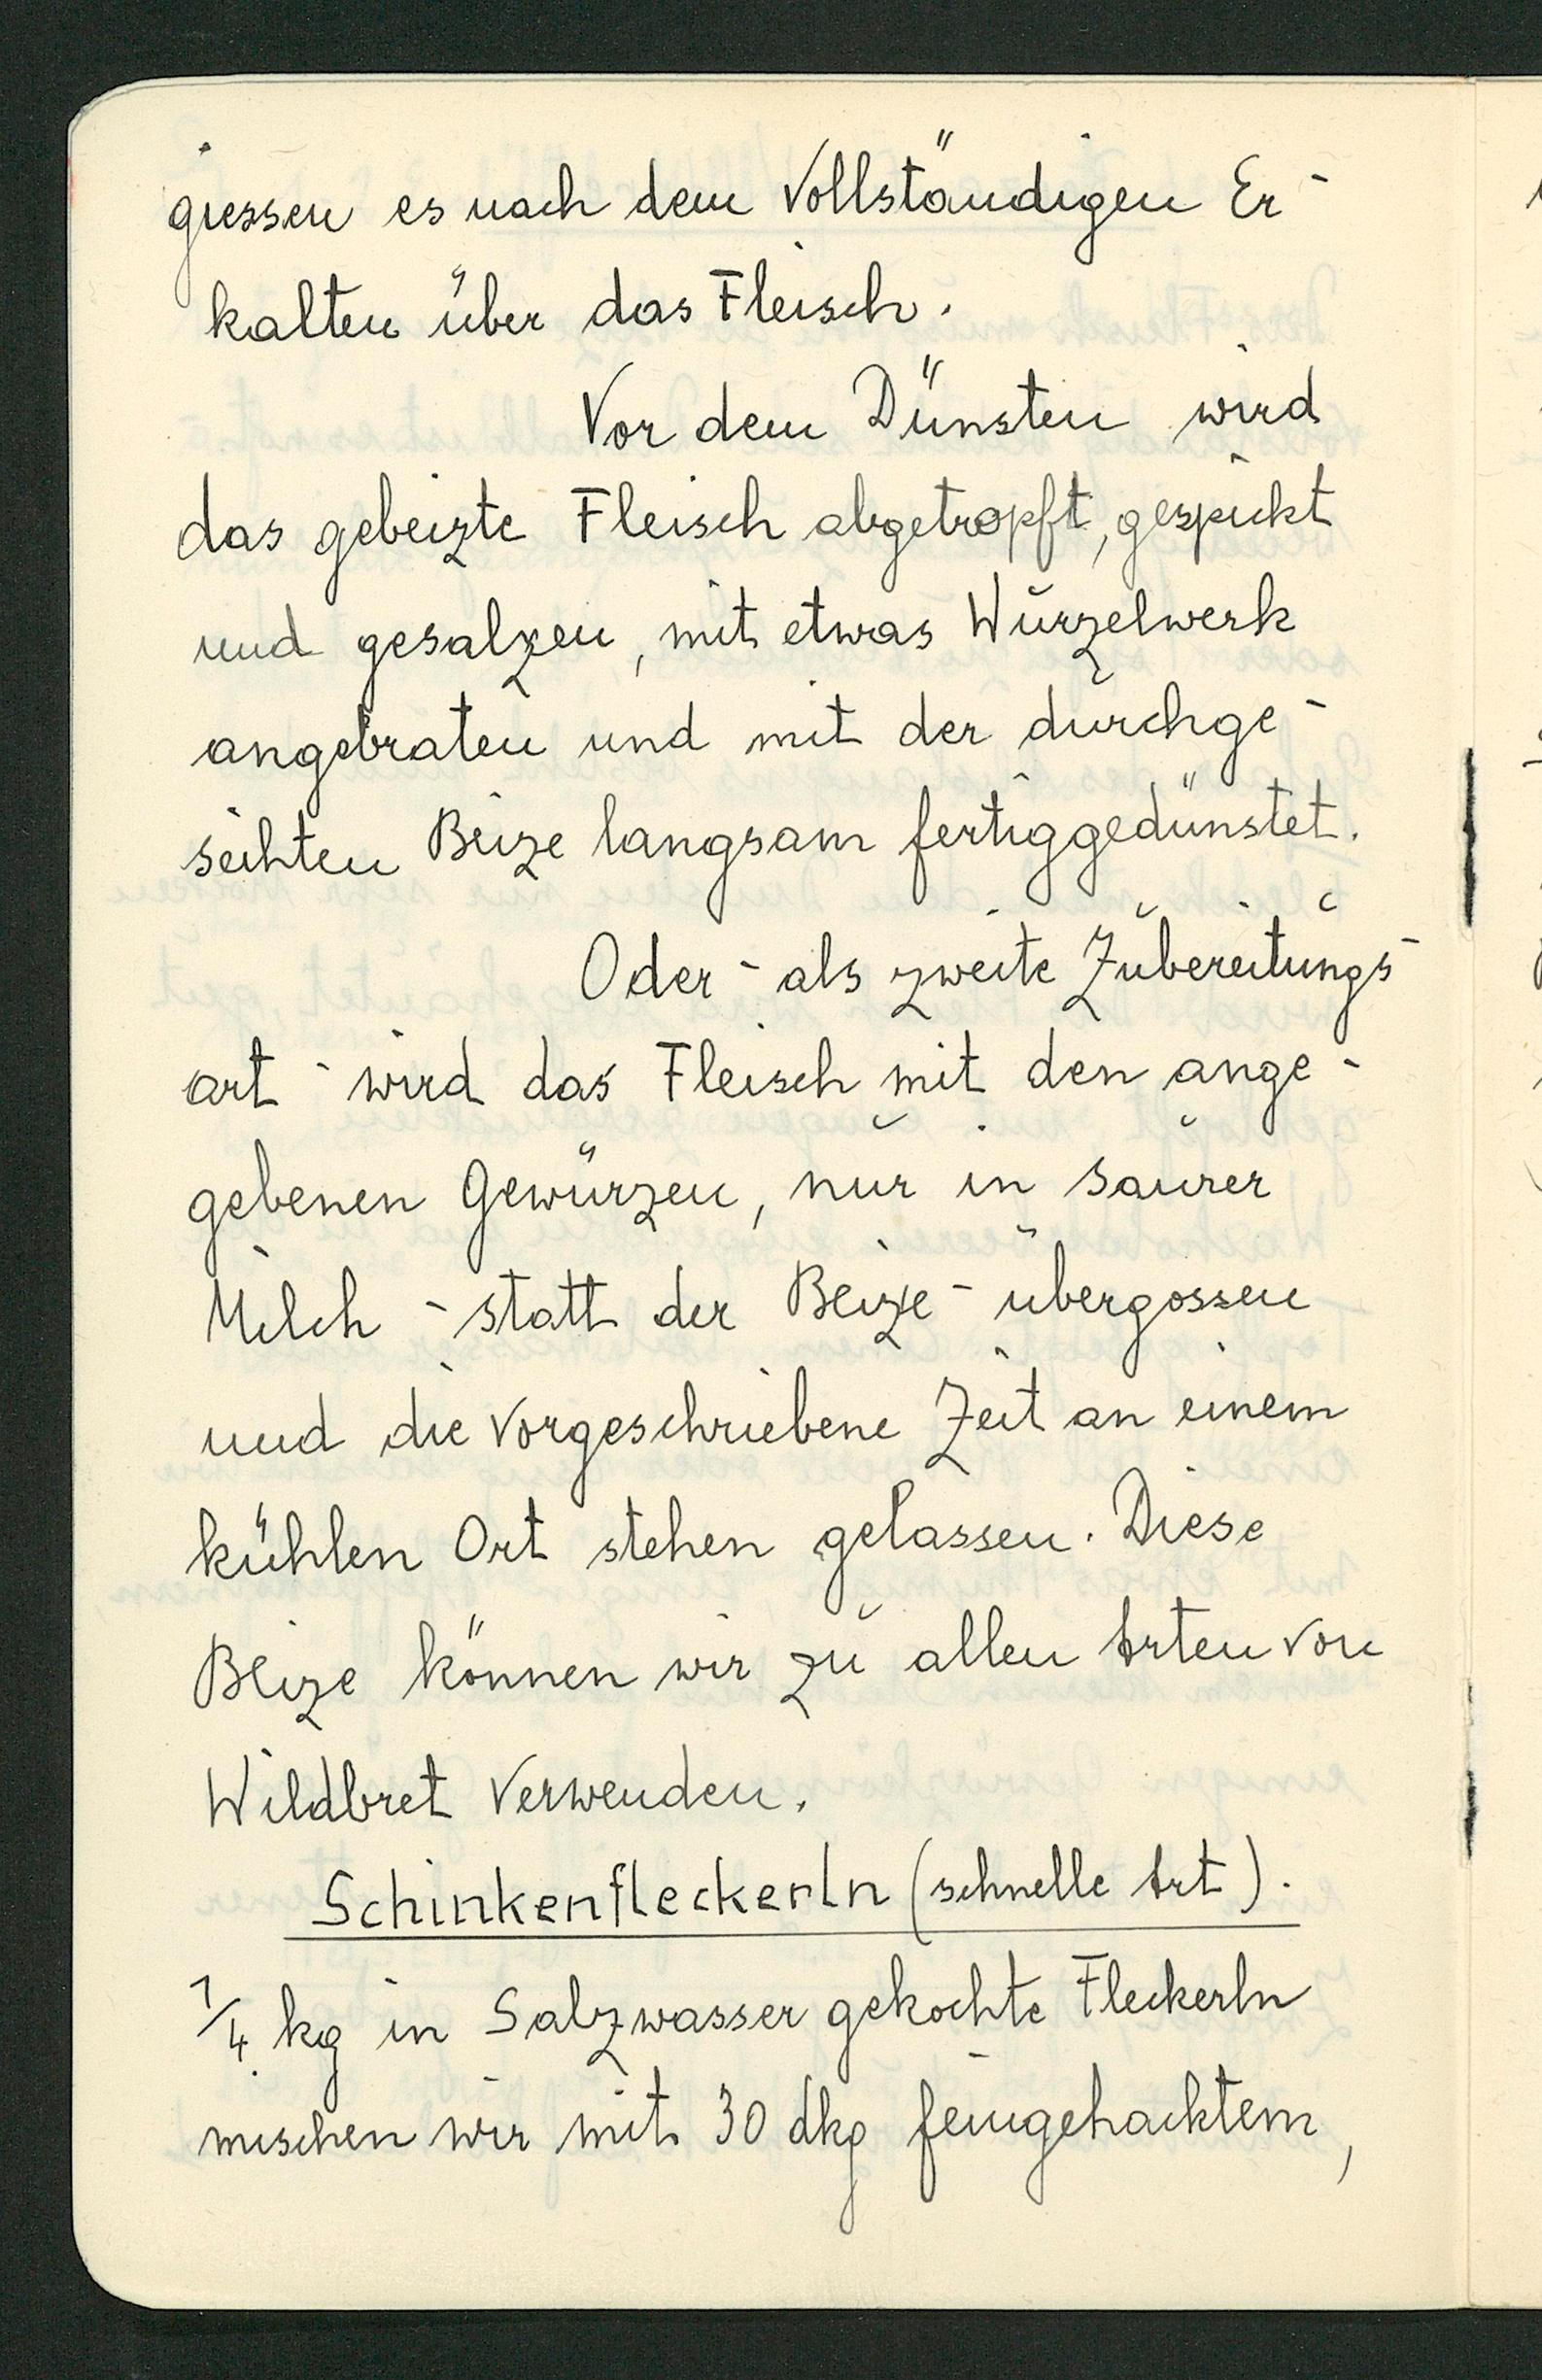 giessen es nach dem vollständigen Er-
kalten über das Fleisch.
Vor dem Dünsten wird
das gebeizte Fleisch abgetropft, gespickt
und gesalzen, mit etwas Wurzelwerk
angebraten und mit der durchge-
seihten Beize langsam fertiggedünstet.
Oder - als zweite Zubereitungs-
art - wird das Fleisch mit den ange-
gebenen Gewürzen, nur in saurer
Milch - statt der Beize - übergossen
und die vorgeschriebene Zeit an einem
kühlen Ort stehen gelassen. Diese
Beize können wir zu allen Arten von
Wildbret verwenden.
Schinkenfleckerln (schnelle Art).
1/4 kg in Salzwasser gekochte Fleckerln
mischen wir mit 30 dkg feingehacktem,